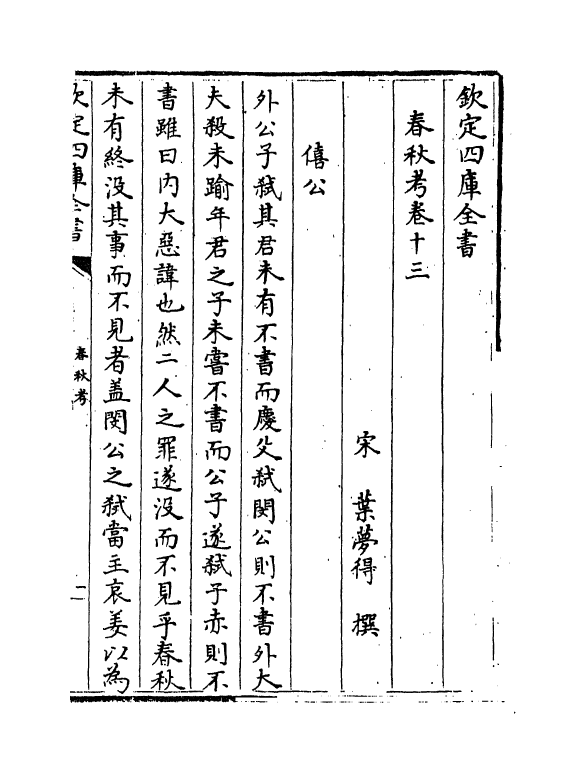 欽定四庫全書
春秋考卷十三
宋 葉夢得 撰
僖公
外公子弑其君未有不書而慶父弑閔公則不書外大
夫殺未踰年君之子未嘗不書而公子遂弑子赤則不
書雖曰内大惡諱也然二人之罪遂没而不見乎春秋
未有終没其事而不見者盖閔公之弑當主哀姜以為
欽定四庫全書
春秋考